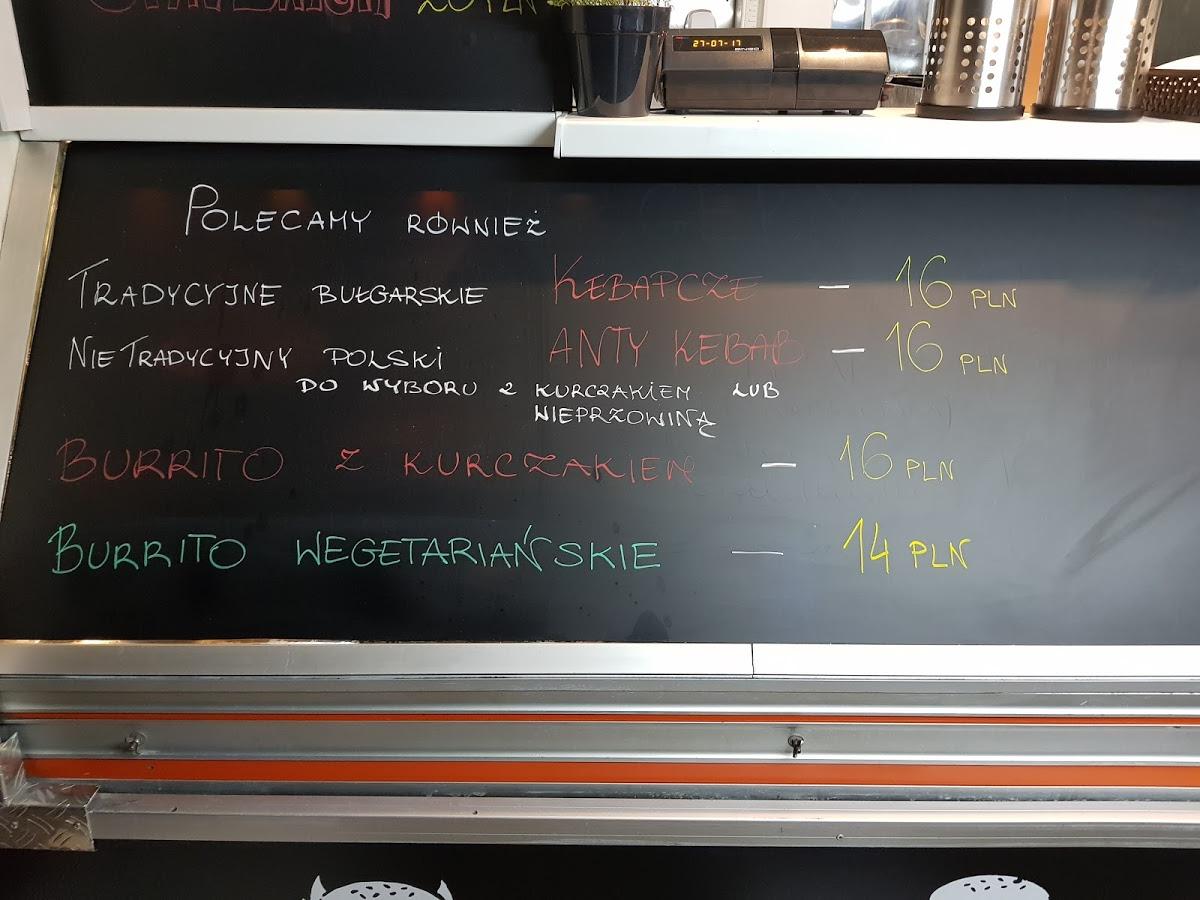 20 PLN
27-07-17
POLECAMY RÓWNIEŻ
TRADYCYJNE BUŁGARSKIE KEBAPCZE — 16 PLN
NIETRADYCYJNY POLSKI ANTY KEBAB — 16 PLN
DO WYBORU Z KURCZAKIEM LUB
NIEPRZOWINĄ
BURRITO Z KURCZAKIEM — 16 PLN
BURRITO WEGETARIAŃSKIE — 14 PLN